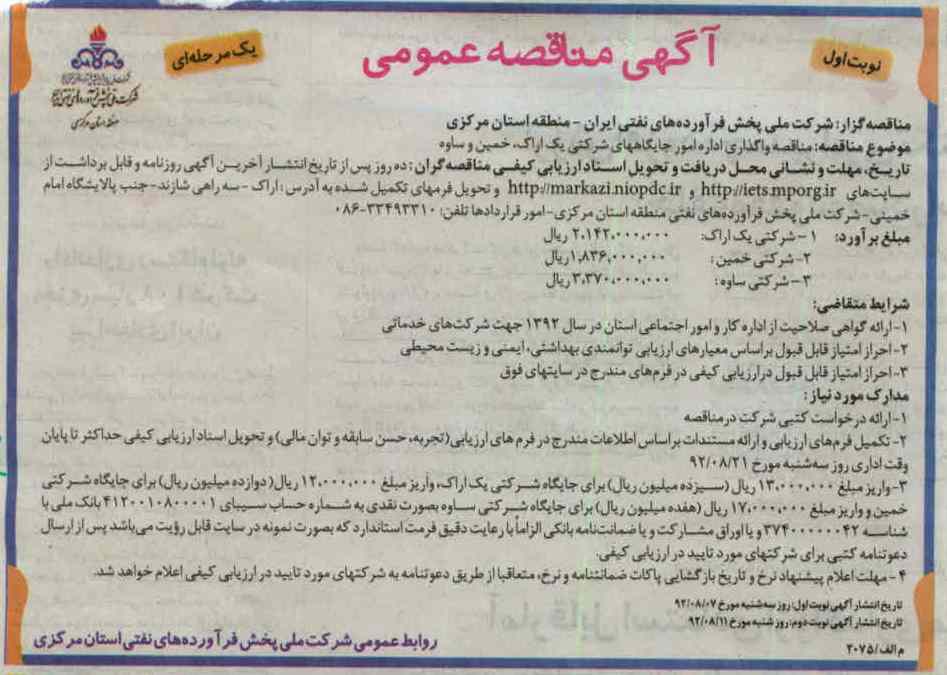 نوبت اول
آگهی مناقصه عمومی
یک مرحله‌ای
شرکت ملی پخش فرآورده‌های نفتی ایران
منطقه استان مرکزی
مناقصه‌گزار: شرکت ملی پخش فرآورده‌های نفتی ایران - منطقه استان مرکزی
موضوع مناقصه: مناقصه واگذاری اداره امور جایگاههای شرکتی یک اراک، خمین و ساوه
تاریخ، مهلت و نشانی محل دریافت و تحویل اسناد ارزیابی کیفی مناقصه‌گران: ده روز پس از تاریخ انتشار آخرین آگهی روزنامه و قابل برداشت از
سایت‌های http://iets.mporg.ir و http://markazi.niopdc.ir و تحویل فرمهای تکمیل شده به آدرس: اراک - سه راهی شازند - جنب پالایشگاه امام
خمینی - شرکت ملی پخش فرآورده‌های نفتی منطقه استان مرکزی - امور قراردادها تلفن: ۳۳۴۹۳۳۱۰-۰۸۶
مبلغ برآورد: ۱- شرکتی یک اراک: ۲،۱۴۲،۰۰۰،۰۰۰ ریال
۲- شرکتی خمین: ۱،۸۳۶،۰۰۰،۰۰۰ ریال
۳- شرکتی ساوه: ۳،۳۷۰،۰۰۰،۰۰۰ ریال
شرایط متقاضی:
۱- ارائه گواهی صلاحیت از اداره کار و امور اجتماعی استان در سال ۱۳۹۲ جهت شرکت‌های خدماتی
۲- احراز امتیاز قابل قبول براساس معیارهای ارزیابی توانمندی بهداشتی، ایمنی و زیست محیطی
۳- احراز امتیاز قابل قبول در ارزیابی کیفی در فرم‌های مندرج در سایتهای فوق
مدارک مورد نیاز:
۱- ارائه درخواست کتبی شرکت در مناقصه
۲- تکمیل فرم‌های ارزیابی و ارائه مستندات براساس اطلاعات مندرج در فرم های ارزیابی (تجربه، حسن سابقه و توان مالی) و تحویل اسناد ارزیابی کیفی حداکثر تا پایان
وقت اداری روز سه‌شنبه مورخ ۹۲/۰۸/۲۱
۳- واریز مبلغ ۱۳،۰۰۰،۰۰۰ ریال (سیزده میلیون ریال) برای جایگاه شرکتی یک اراک، واریز مبلغ ۱۲،۰۰۰،۰۰۰ ریال (دوازده میلیون ریال) برای جایگاه شرکتی
خمین و واریز مبلغ ۱۷،۰۰۰،۰۰۰ ریال (هفده میلیون ریال) برای جایگاه شرکتی ساوه بصورت نقدی به شماره حساب سیبای ۴۱۲۰۰۱۰۸۰۰۰۰۱ بانک ملی با
شناسه ۳۷۴۰۰۰۰۰۰۴۲ و یا اوراق مشارکت و یا ضمانت‌نامه بانکی الزاماً با رعایت دقیق فرمت استاندارد که بصورت نمونه در سایت قابل رؤیت می‌باشد پس از ارسال
دعوتنامه کتبی برای شرکتهای مورد تایید در ارزیابی کیفی.
۴- مهلت اعلام پیشنهاد نرخ و تاریخ بازگشایی پاکات ضمانتنامه و نرخ، متعاقبا از طریق دعوتنامه به شرکتهای مورد تایید در ارزیابی کیفی اعلام خواهد شد.
تاریخ انتشار آگهی نوبت اول: روز سه شنبه مورخ ۹۲/۰۸/۰۷
تاریخ انتشار آگهی نوبت دوم: روز شنبه مورخ ۹۲/۰۸/۱۱
م الف/۲۰۷۵
روابط عمومی شرکت ملی پخش فرآورده‌های نفتی استان مرکزی